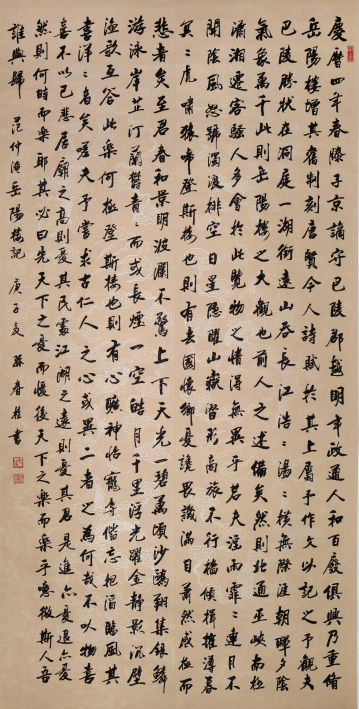 慶曆四年春滕子京謫守巴陵郡越明年政通人和百廢俱興乃重脩
岳陽樓增其舊制刻唐賢今人詩賦於其上屬予作文以記之予觀夫
巴陵勝狀在洞庭一湖銜遠山吞長江浩〻湯〻橫無際涯朝暉夕陰
氣象萬千此則岳陽樓之大觀也前人之述備矣然則北通巫峽南極
瀟湘遷客騷人多會於此覽物之情得無異乎若夫淫雨霏〻連月不
開陰風怒號濁浪排空日星隱曜山嶽潛形商旅不行檣傾楫摧薄暮
冥〻虎嘯猿啼登斯樓也則有去國懷鄉憂讒畏譏滿目蕭然感極而
悲者矣至若春和景明波瀾不驚上下天光一碧萬頃沙鷗翔集錦鱗
游泳岸芷汀蘭鬱青〻而或長煙一空皓月千里浮光躍金靜影沉璧
漁歌互答此樂何極登斯樓也則有心曠神怡寵辱偕忘把酒臨風其
喜洋〻者矣嗟夫予嘗求古仁人之心或異二者之為何哉不以物喜
喜不以己悲居廟之高則憂其民處江湖之遠則憂其君是進亦憂退亦憂
然則何時而樂耶其必曰先天下之憂而憂後天下之樂而樂乎噫微斯人吾
誰與歸 范仲淹岳陽樓記 庚子夏 孫春書